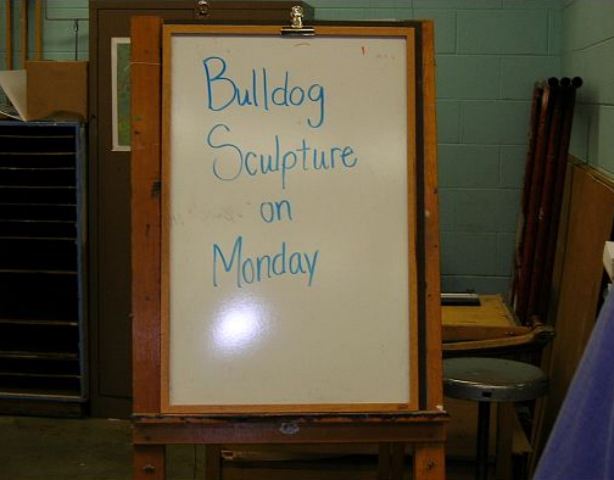 Bulldog
Sculpture
on
Monday